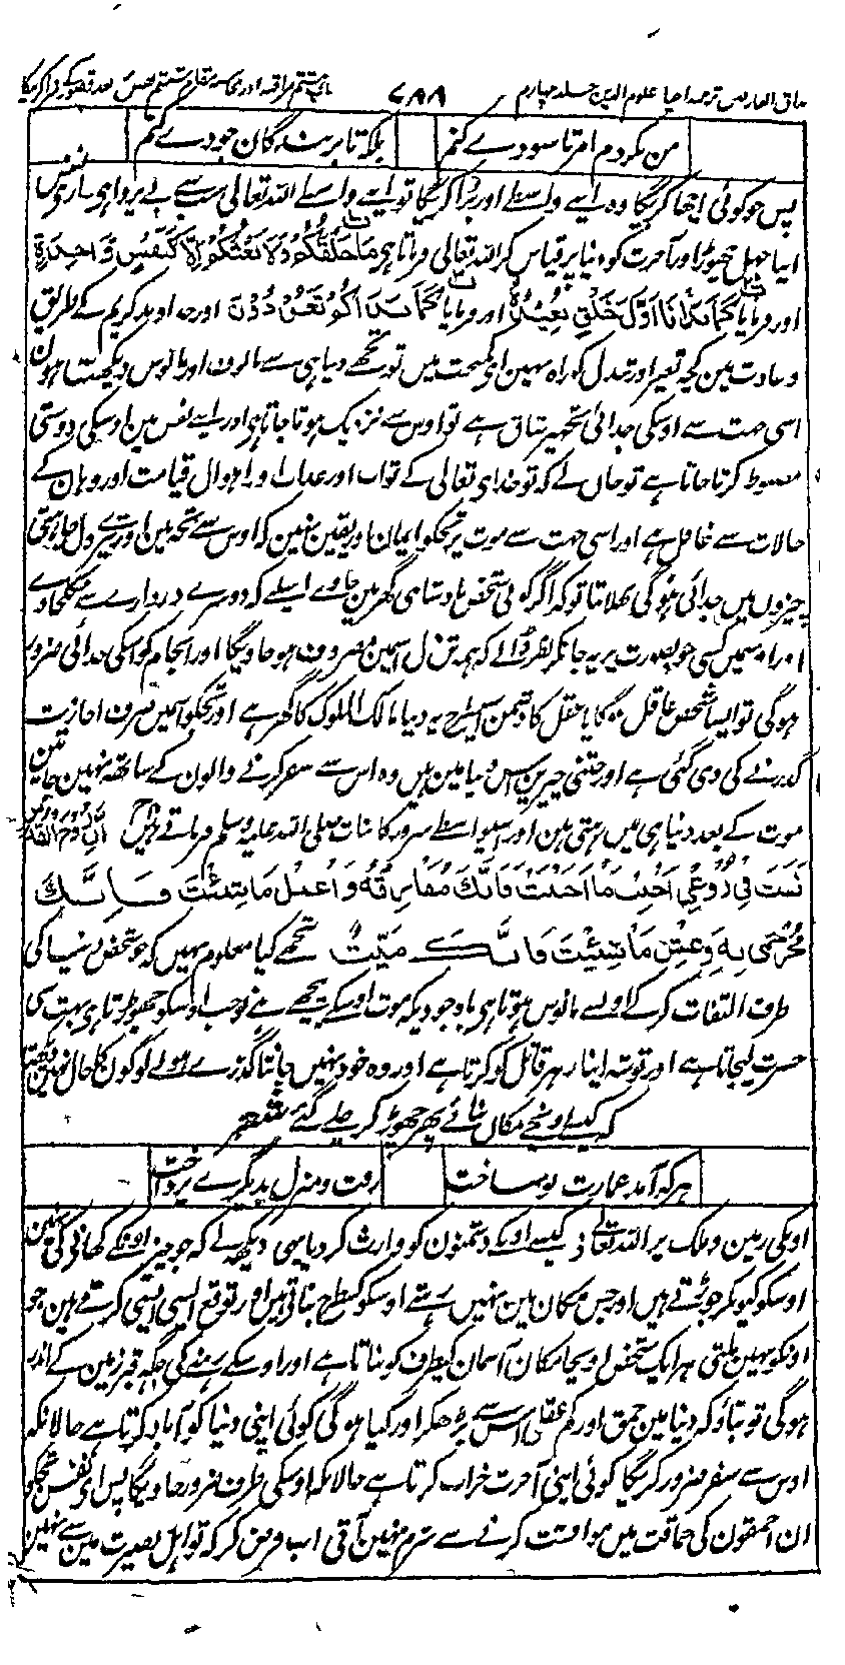 مذاق العارفین ترجمہ احیا علوم الدین جلد چہارم ۷۸۸ باب ہشتم مراقبہ اور محاسبہ مقام ششم نفس
من نکردم امر تا سودے کنم بلکہ تا بر بندگان جودے کنم
پس جو کوئی اچھا کریگا وہ اپنے واسطے اور برا کریگا تو اپنے واسطے اللہ تعالی سب سے بے پروا ہی اری نفس
اپنا جہل چھوڑ اور آخرت کو دنیا پر قیاس کر اللہ تعالی فرماتا ہی مَا خَلْقُكُمْ وَلَا بَعْثُكُمْ إِلَّا كَنَفْسٍ وَّاحِدَةٍ
اور فرمایا كَمَا بَدَأْنَا اَوَّلَ خَلْقٍ نُّعِيْدُهٗ اور فرمایا كَمَا بَدَأَكُمْ تَعُوْدُوْنَ اور خداوند کریم کے طریق
و عادت مین کچھ تغیر اور تبدل کو راہ نہین ای کمبخت میں تو تجھے دنیا ہی سے مالوف اور مانوس دیکھتا ہون
اسی جہت سے اوسکی جدائی تجھپر شاق ہے تو اوس سے نزدیک ہوتا جاتا ہی اور اپنے نفس مین اوسکی دوستی
مضبوط کرتا جاتا ہے تو جان لے کہ تو خدای تعالی کے ثواب اور عذاب اور اہوال قیامت اور وہان کے
حالات سے غافل ہے اور اسی جہت سے موت پر تجکو ایمان اور یقین نہین کہ اوس سے تجہ مین اور تیرے دل چاہتی
چیزوں میں جدائی ہوگی بھلا بتا تو کہ اگر کوئی شخص بادشاہی گھر مین جاوے اسلیے کہ دوسرے دروازے سے نکلجاوے
اور اوسمیں کسی خوبصورت پر یہ جانکر نظر ڈالے کہ ہمہ تن دل اسمین مصروف ہو جاویگا اور انجام کو اسکی جدائی ضرور
ہوگی تو ایسا شخص عاقل ہوگا یا عقل کا دشمن اسیطرح یہ دنیا مالک الملوک کا گھر ہے اور تجکو اسمیں صرف اجازت
گذرنے کی دی گئی ہے اور جتنی چیزین اس دنیا مین ہیں وہ اس سے سفر کرنے والون کے ساتھ نہین جاتین
موت کے بعد دنیا ہی میں رہتی ہین اور اسیواسطے سرور کائنات صلی اللہ علیہ وسلم فرماتے ہین اِنَّ رُوْحَ الْقُدُسِ
نَفَثَ فِيْ رُوْعِيْ اَحْبِبْ مَا اَحْبَبْتَ فَاِنَّكَ مُفَارِقُهٗ وَاعْمَلْ مَا شِئْتَ فَاِنَّكَ
مُجْزًى بِهٖ وَعِشْ مَا شِئْتَ فَاِنَّكَ مَيِّتٌ تجھے کیا معلوم نہیں کہ جو شخص دنیا کی
طرف التفات کرکے اوس سے مانوس ہوتا ہی باوجودیکہ موت اوسکے پیچھے ہے تو جب اوسکو چھوڑتا ہی بہت سی
حسرت لیجاتا ہے اور توشہ اپنا زہر قاتل کو کرتا ہے اور وہ خود نہیں جانتا گذرے ہوئے لوگون کا حال نہیں دیکھتا
کہ کیسے اونچے مکان بنائے پھر چھوڑ کر چلے گئے شعر
ہر کہ آمد عمارت نو ساخت رفت و منزل بدیگرے پرداخت
اونکی زمین و ملک پر اللہ تعالے نے کیسے اونکے دشمنون کو وارث کر دیا یہی دیکھ لے کہ جو چیز اونکے کھانے کی نہین
اوسکو کیونکر جوڑتے ہیں اور جس مکان مین نہیں رہتے اوسکو کسطرح بناتے ہیں اور توقع ایسی ایسی کرتے ہین جو
اونکو نہین ملتی ہر ایک شخص اونچا مکان آسمان کیطرف کو بناتا ہے اور اوسکے رہنے کی جگہ قبر زمین کے اندر
ہوگی تو بتاؤ کہ دنیا مین حمق اور کم عقلی اس سے بڑھکر اور کیا ہوگی کوئی اپنی دنیا کو آباد کرتا ہے حالانکہ
اوس سے سفر ضرور کریگا کوئی اپنی آخرت خراب کرتا ہے حالانکہ اوسکی طرف ضرور جاویگا پس ای نفس تجکو
ان احمقون کی حماقت میں موافقت کرنے سے شرم نہین آتی اب فرض کر کہ تو اہل بصیرت مین سے نہین